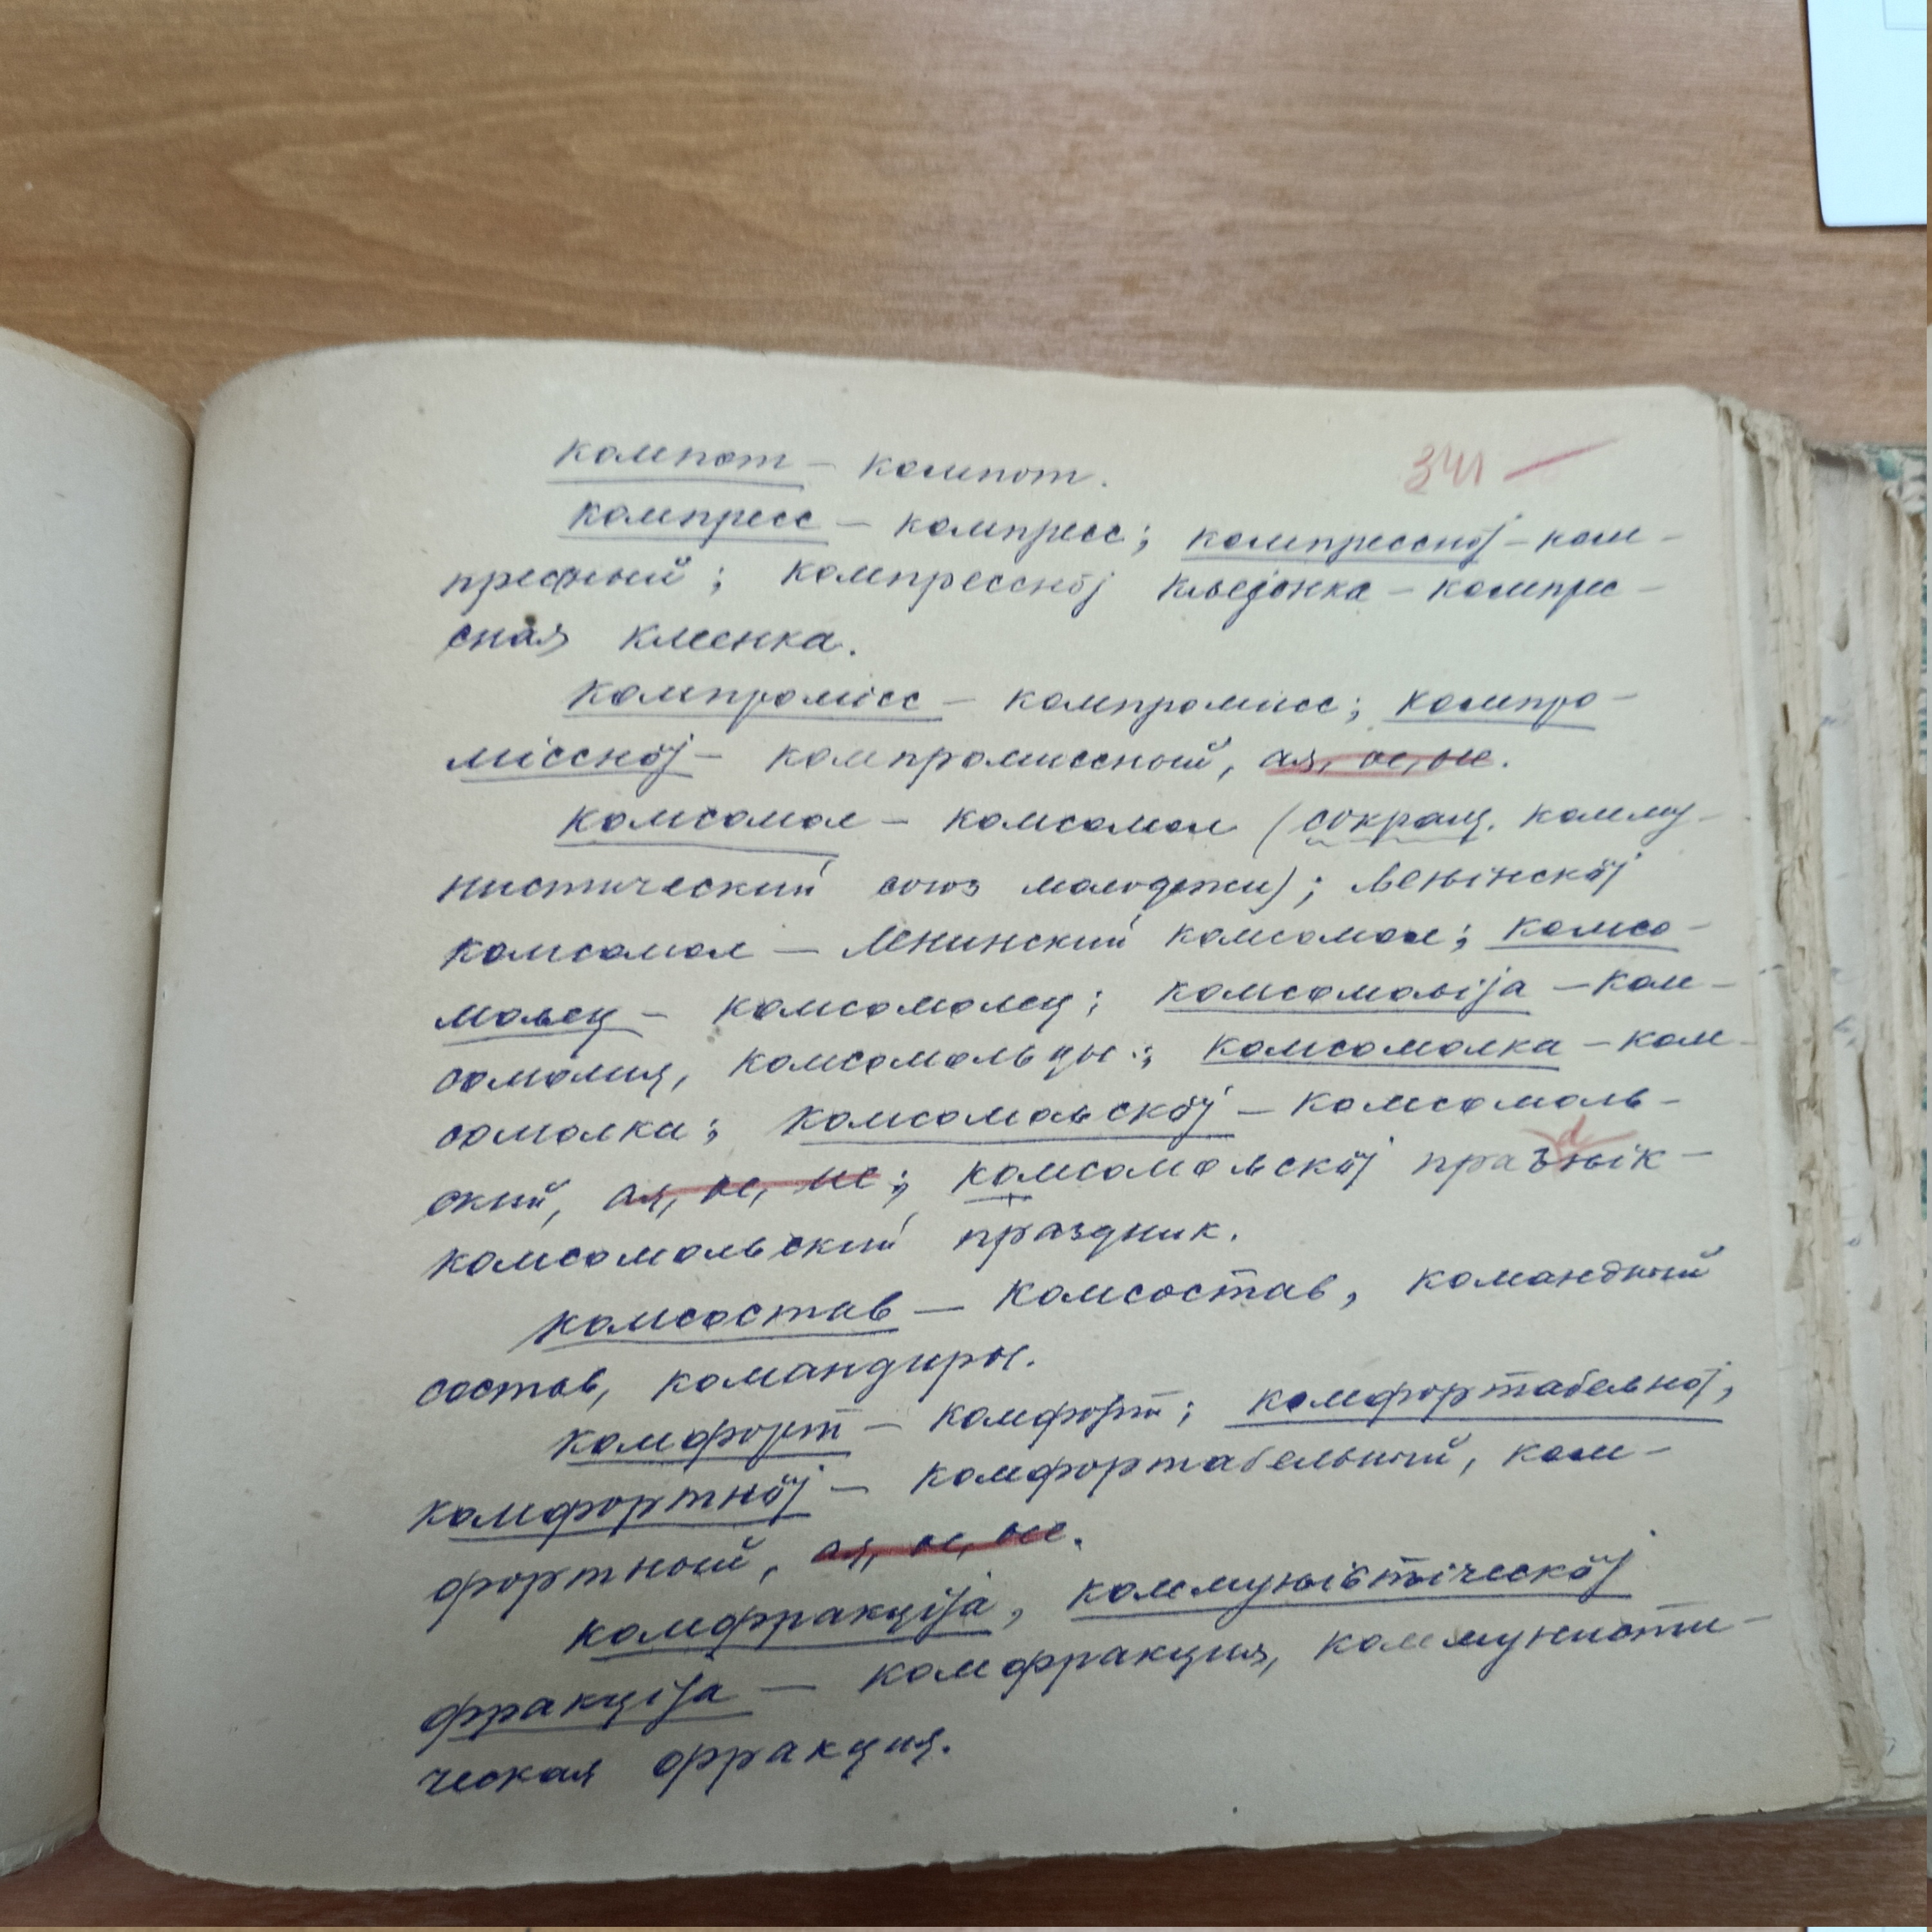 341 —
компот — компот.
компресс — компресс; компресснӧј — ком-
пресный; компресснӧј кљејонка — компрес-
сная клеенка.
компроміcс — компромисс; компро-
місснӧј — компромиссный, ая, ое, ые.
комсомол — комсомол (сокращ. комму-
нистический союз молодежи); Љењінскӧј
комсомол — Ленинский комсомол; комсо-
мољец — комсомолец; комсомољіја — ком-
сомолия, комсомольцы; комсомолка — ком-
сомолка; комсомољскӧј — комсомоль-
ский, ая, ое, ие; комсомољскӧј празdњік —
комсомольский праздник.
комсостав — комсостав, командный
состав, командиры.
комфорт — комфорт; комфортабељнӧј,
комфортнӧј — комфортабельный, ком-
фортный, ая, ое, ые.
комфракціја, коммуњістіческӧј
фракціја — комфракция, коммунисти-
ческая фракция.